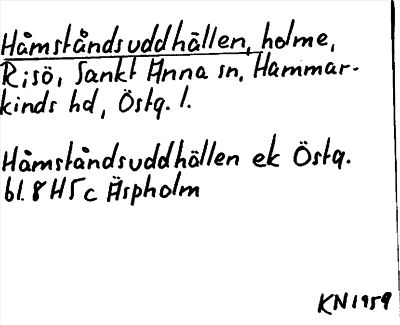 Håmståndsuddhällen, holme,
Risö, Sankt Anna sn, Hammar-
kinds hd, Östg. l.
Håmståndsuddhällen ek Östg.
bl. 8 H 5 c Äspholm
KN 1959